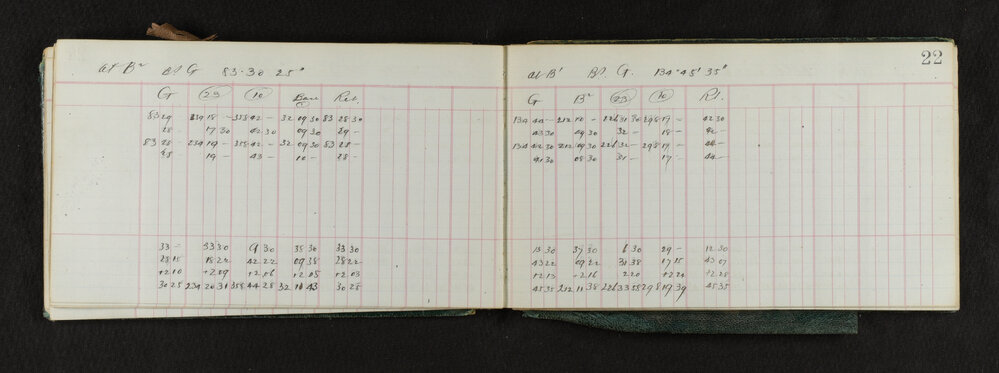 At B² Bs G 83·30 25"
G 23 10 Base Ret.
83 29 234 18 – 358 42 – 32 09 30 83 28 30
28 – 17 30 42 30 09 30 29 –
83 28 – 234 19 – 358 42 – 32 09 30 83 28 –
28 19 – 43 – 10 – 28 –
33 – 53 30 9 30 38 30 33 30
28 15 18 22 42 22 09 38 28 22
+2 10 +2 09 +2 06 +2 05 +2 03
30 25 234 20 31 358 44 28 32 11 43 30 25
22
At B' Bs. G. 134° 45' 35"
G B² 23 10 Rt.
134 44 – 212 10 – 226 31 30 298 17 – 42 30
43 30 09 30 32 – 18 – 42 –
134 42 30 212 09 30 226 32 – 298 17 – 44 –
41 30 08 30 31 – 17 44 –
13 30 37 30 6 30 29 – 12 30
43 22 09 22 31 38 17 15 43 07
+2 13 –2 16 2 20 +2 24 +2 28
45 35 212 11 38 226 33 58 298 19 39 45 35